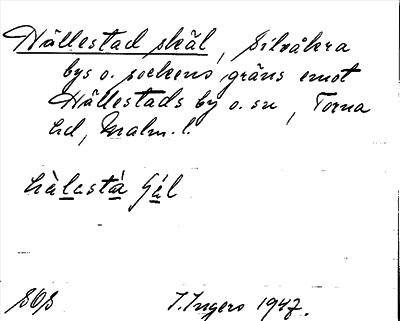 Hällestad skäl, Silvåkra
bys o. sockens gräns emot
Hällestads by o. sn, Torna
hd, Malm. l.
SOS I. Ingers 1947.